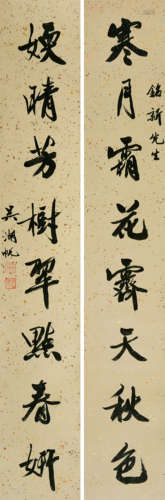 寒月霜花霽天秋色
銘新先生
媆晴芳樹翠點春妍
吳湖帆